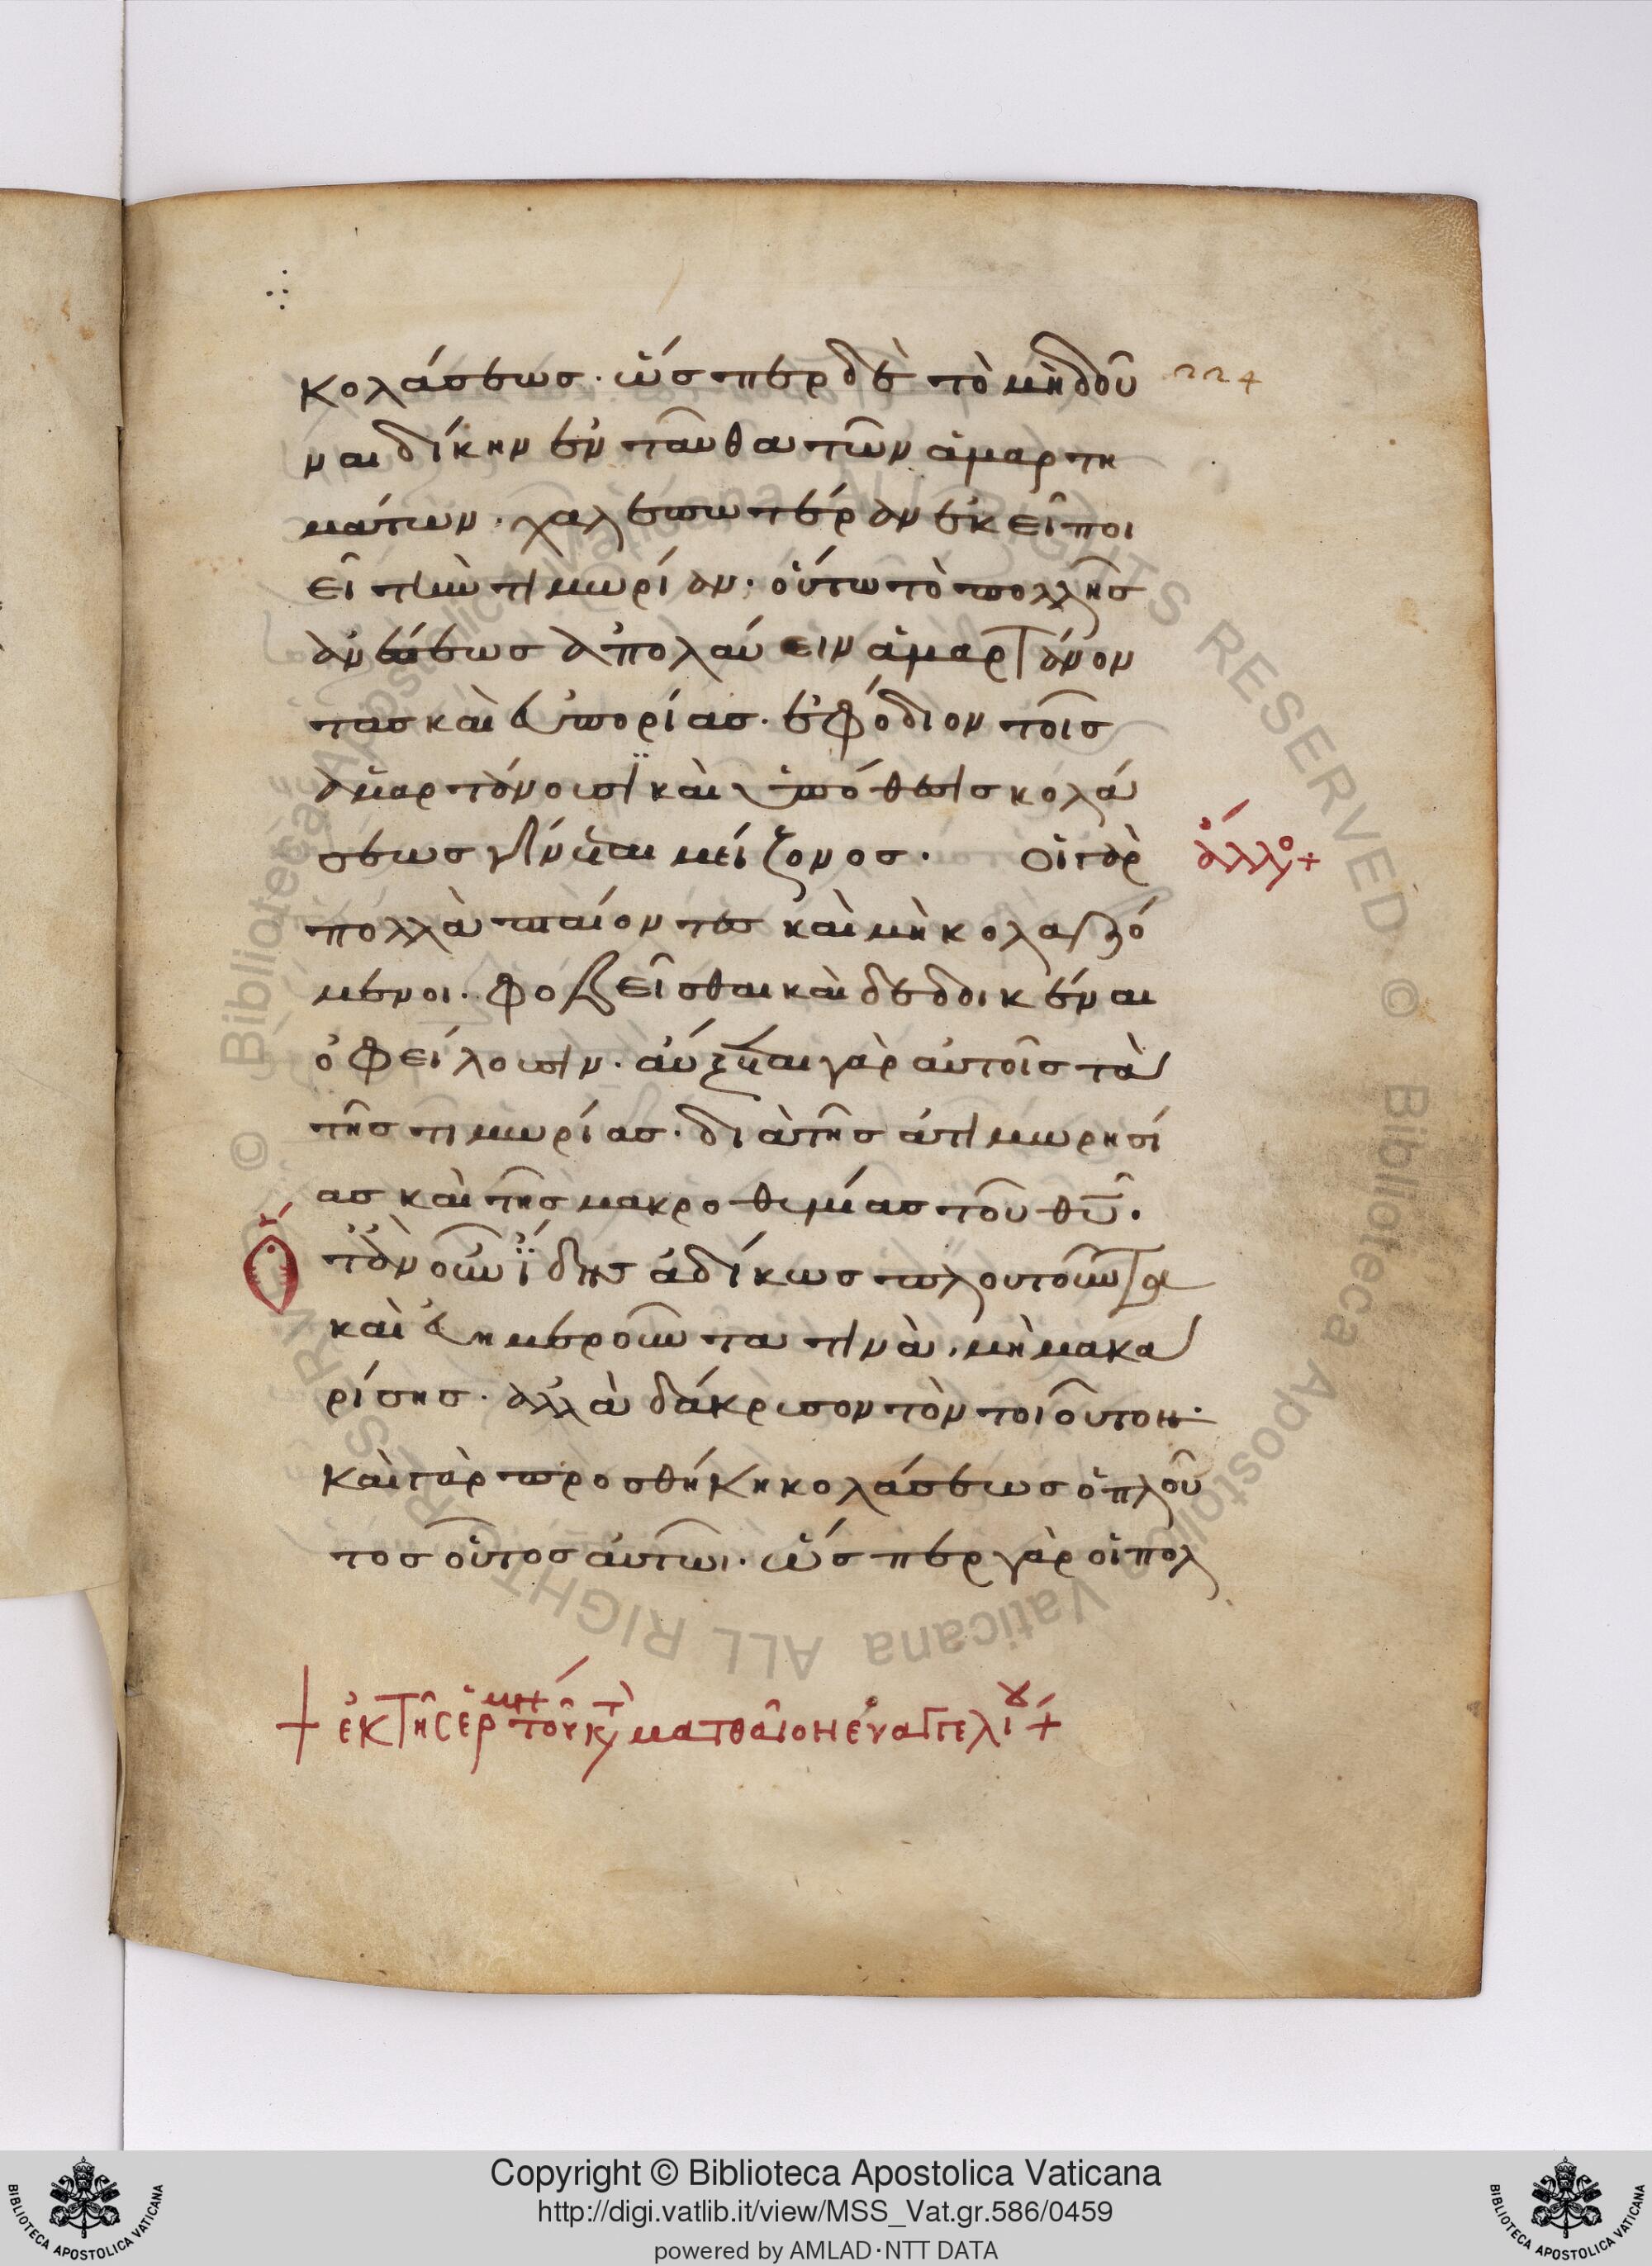 κολάσεως· ὥσπερ δὲ τὸ μὴ δοῦ
224
ναι δίκην ἐνταῦθα τῶν ἁμαρτη
μάτων· χαλεπωτέραν ἐκεῖ ποι
εῖ τὴν τιμωρίαν· οὕτω τὸ πολλῆς
ἀνέσεως ἀπολαύειν ἁμαρτάνον
τας καὶ εὐπορίας· ἐφόδιον τοῖς
ἁμαρτάνουσι καὶ ὑπόθεσις κολά
σεως γίνεται μείζονος· Οἱ γὰρ
ἄλλο +
πολλὰ πταίοντες καὶ μὴ κολαζό
μενοι· φοβεῖσθαι καὶ δεδοικέναι
ὀφείλουσιν· αὔξεται γὰρ αὐτοῖς τὰ
τῆς τιμωρίας· διὰ τῆς ἀτιμωρησί
ας καὶ τῆς μακροθυμίας τοῦ θυ·
Ὅταν οὖν ἴδης ἀδίκως πλουτοῦντα
καὶ εὐημεροῦντα τινὰ, μὴ μακα
ρίσης· ἀλλὰ δάκρυσον τὸν τοιοῦτον·
Καὶ γὰρ προσθήκη κολάσεως ὁ πλοῦ
τος οὗτος αὐτῶι· ὥσπερ γὰρ οἱ πολ
+ ἐκ τῆς ἑρμη τοῦ κτ ματθαῖον εὐαγγελίου +
Copyright © Biblioteca Apostolica Vaticana
http://digi.vatlib.it/view/MSS_Vat.gr.586/0459
powered by AMLAD·NTT DATA
BIBLIOTECA APOSTOLICA VATICANA
BIBLIOTECA APOSTOLICA VATICANA
© Biblioteca Apostolica Vaticana ALL RIGHTS RESERVED
© Biblioteca Apostolica Vaticana ALL RIGHTS RESERVED